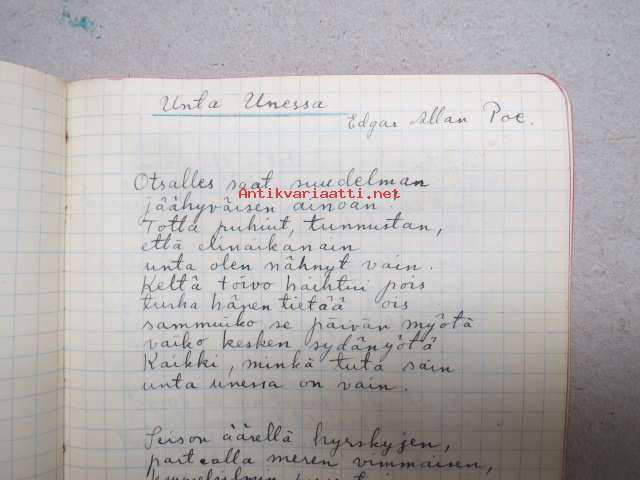 Unta Unessa
Edgar Allan Poe.
Otsalles saat suudelman
Antikvariaatti.net
jäähyväisen ainoan!
Totta puhuit, tunnustan,
että elinaikanain
unta olen nähnyt vain.
Keltä toivo haihtui pois
turha hänen tietää ois
sammuiko se päivän myötä
vaiko kesken sydänyötä
Kaikki, minkä tuta sain
unta unessa on vain.
Seison äärellä hyrskyjen,
partealla meren vimmaisen,